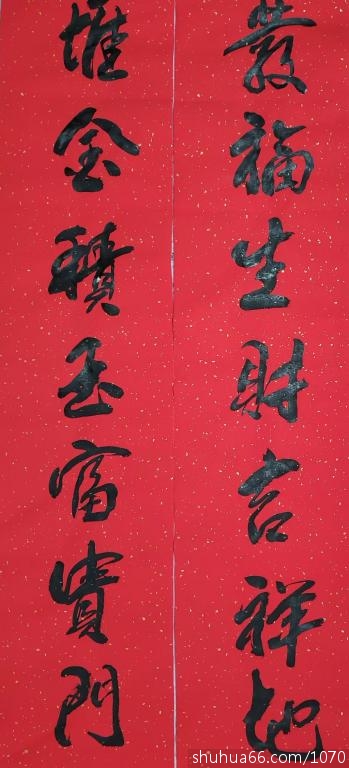 發福生財吉祥地
堆金積玉富貴門
shuhua66.com/1070